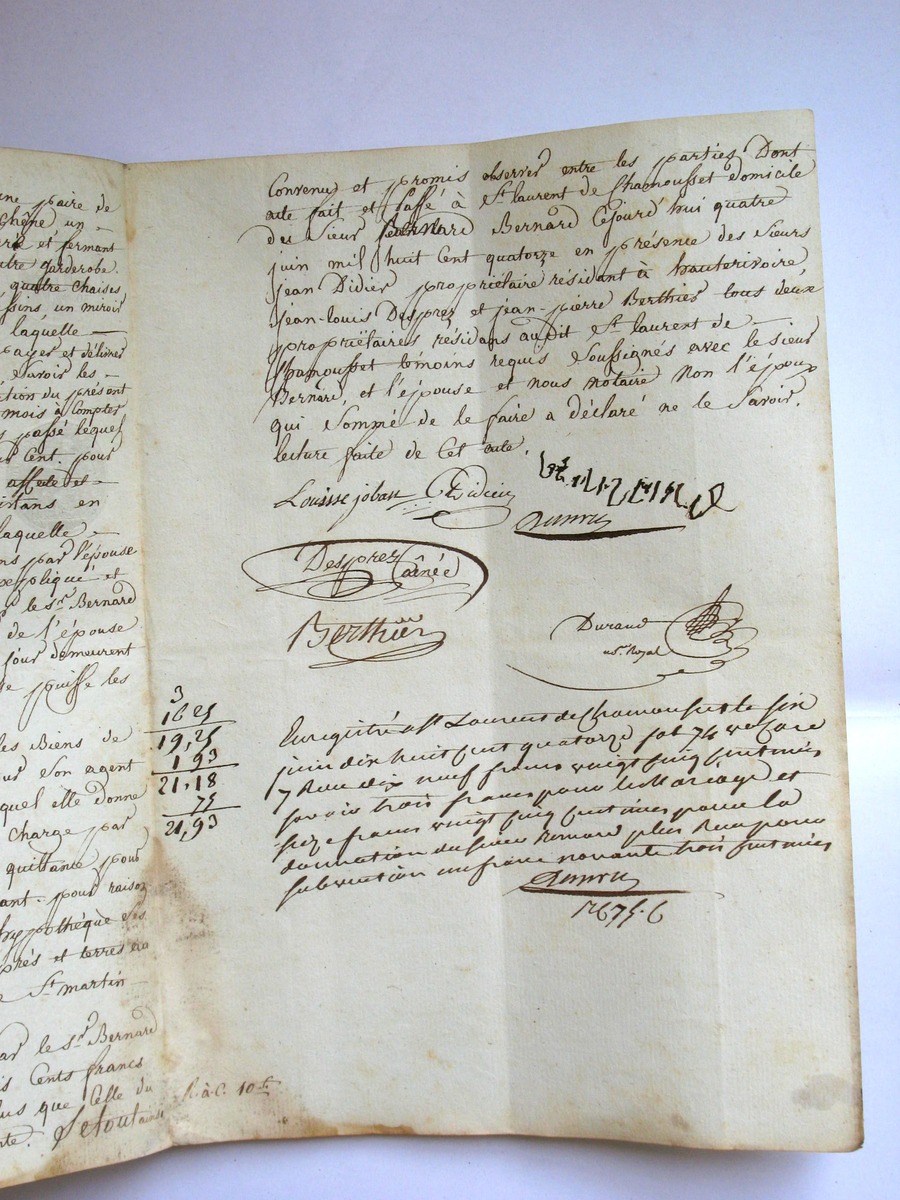 une paire de
Chêne un
et fermant
autre garderobe.
quatre chaises
un miroir
laquelle
payer et délivrer
Savoir les
du présent
mois à Compter
passé lequel
Cent. pour
affecte et
en
laquelle
par l'épouse
expliqué et
le sr. Bernard
de l'épouse
jour demeurent
puisse les
les Biens de
Son agent
quel elle donne
Charge par
quittance pour
pour raison
hypothèque Ses
prés et terres
St. martin
par le sr. Bernard
Cents francs
plus que Celle du
Le tout ainsi
Convenu et promis observer entre les parties Dont
acte fait et passé à St. laurent de Chamousset domicile
des Sieur Bernard Cejourd'hui quatre
juin mil huit Cent quatorze en présence des Sieurs
jean Didier propriétaire résidant à hauterivoire,
jean-louis Desprez et jean-pierre Berthier tous deux
propriétaires résidans audit St. laurent de
Chamousset témoins requis Soussignés avec le sieur
Bernard, et l'épouse et nous notaire Non l'époux
qui Sommé de le faire a déclaré ne le Savoir.
lecture faite de Cet acte.
Louisse joban Didier
Desprez aînée
Berthier
Durand
nre. Royal
3
16 25
19,25
1 93
21,18
75
21,93
Enregistré à St Laurent de Chamousset le six
juin dix huit cent quatorze fol 74 vo Case
7 Reçu dix neuf francs vingt cinq centimes
savoir trois francs pour le Mariage et
seize francs vingt cinq centimes pour la
donnation du sieur Bernard plus Reçu pour
subvention un franc nonante trois centimes
R. à C. 10 f.